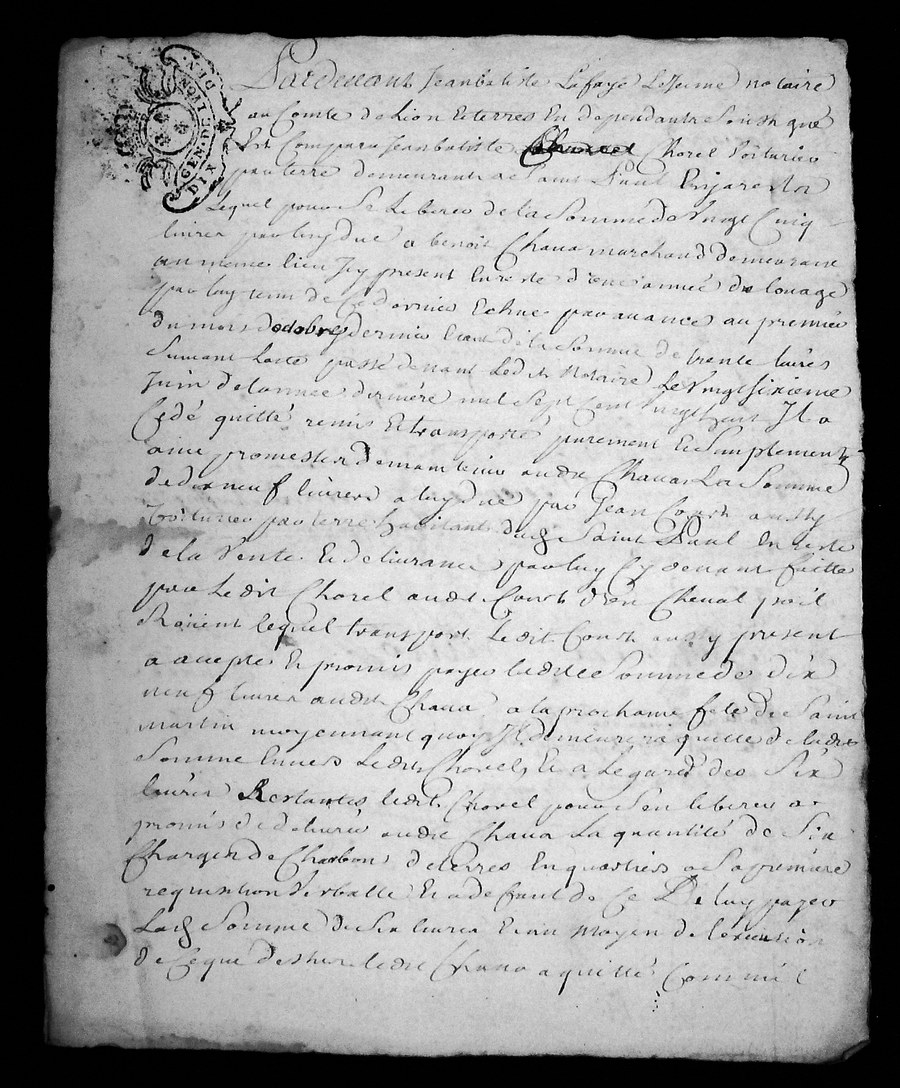 GEN. DE LYON. DIX DEN.
Pardevant Jeanbatiste Lafaye Lejeune notaire
au Comté de Lion Et terres En dependantes Soussigné
Est Comparu Jeanbatiste Chorel Voiturier
par terre demeurant a Saint Paul En Jarest
Lequel pour Se Liberer de la Somme de Vingt Cinq
livres par luy due a benoit Chava marchand demeurant
au meme lieu Icy present En reste d'une année de louage
par luy tenu de Ce dernier Echue par avance au premier
du mois d'octobre dernier Etant de la Somme de trente livres
Suivant Lacte passé devant Ledit Notaire Le Vingt Sixieme
Juin de lannée derniere mil Sept Cent Vingt huit Il a
Cedé quitté remis Et transporté purement Et Simplement
avec promesse de maintenir audit Chava La Somme
de dix neuf livres a luy due par Jean Court aussy
Voiturier par terre habitant dud Saint Paul En reste
de la Vente Et delivrance par luy Cy devant faitte
par Ledit Chorel audit Court d'un Cheval poil
Lequel transport Ledit Court aussy present
a accepté Et promis payer ladite Somme de dix
neuf livres audit Chava a la prochaine fete de Saint
Martin moyennant quoy Il demeurera quitte de ladite
Somme Envers Ledit Chorel, Et a Legard des Six
livres Restantes ledit Chorel pour Sen liberer a
promis de delivrer audit Chava La quantité de Six
Charges de Charbon de terre En quartiers a Sa premiere
requisition Verballe Et a defaut de Ce De luy payer
Lad Somme de Six livres Et au moyen de lexecution
de Ce que dessus ledit Chava a quitté Comme il